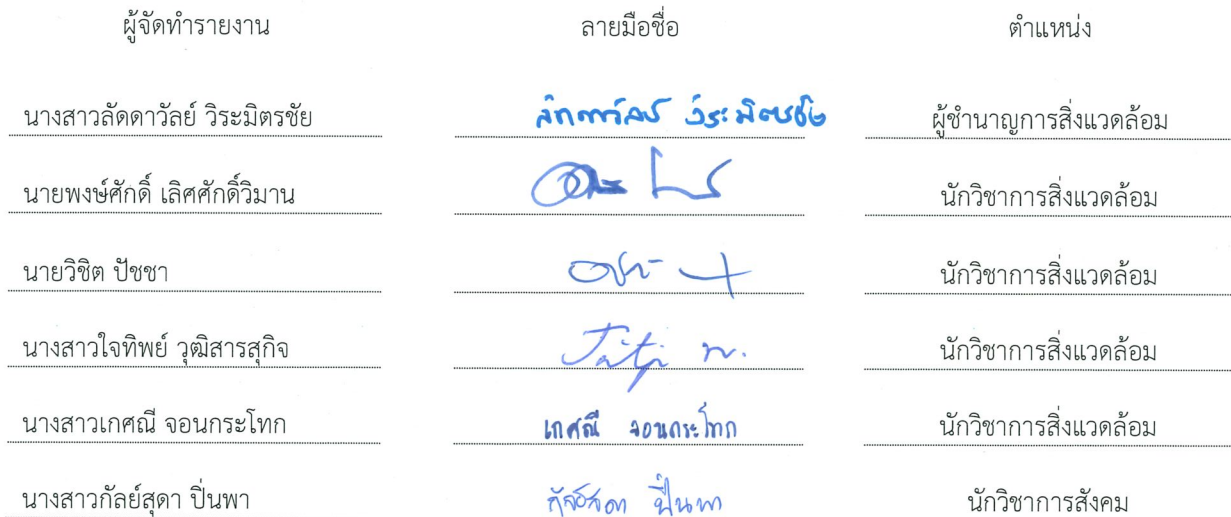 ผู้จัดทำรายงาน ลายมือชื่อ ตำแหน่ง
นางสาวลัดดาวัลย์ วิระมิตรชัย ลัดดาวัลย์ วิระมิตรชัย ผู้ชำนาญการสิ่งแวดล้อม
นายพงษ์ศักดิ์ เลิศศักดิ์วิมาน นักวิชาการสิ่งแวดล้อม
นายวิชิต ปัชชา นักวิชาการสิ่งแวดล้อม
นางสาวใจทิพย์ วุฒิสารสุกิจ นักวิชาการสิ่งแวดล้อม
นางสาวเกศณี จอนกระโทก เกศณี จอนกระโทก นักวิชาการสิ่งแวดล้อม
นางสาวกัลย์สุดา ปิ่นพา กัลย์สุดา ปิ่นพา นักวิชาการสังคม